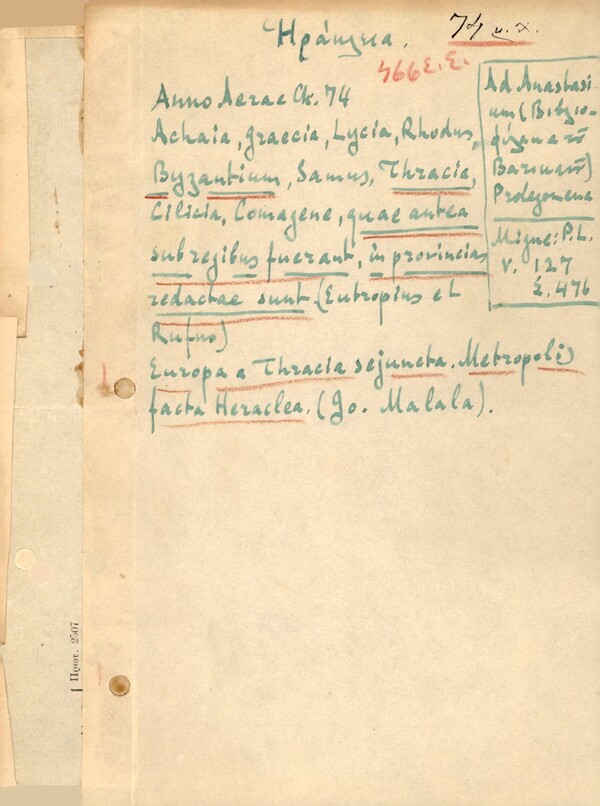 Ηράκλεια.
74 μ.χ.
466 Σ.Σ.
Anno Aerae Ch. 74
Achaia, Graecia, Lycia, Rhodus,
Byzantium, Samus, Thracia,
Cilicia, Comagene, quae antea
sub regibus fuerant, in provincias
redactae sunt. (Eutropius et
Rufus)
Europa a Thracia sejuncta. Metropolis
facta Heraclea. (Jo. Malala).
Ad Anastasi-
um (Βιβλιο-
φύλακα τοῦ
Βατικανοῦ)
Prolegomena
Migne: P.L.
v. 127
Σ. 476
Πρωτ. 2507